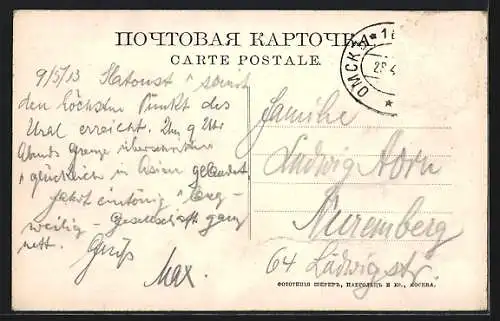 ПОЧТОВАЯ КАРТОЧКА.
CARTE POSTALE.
ОМСКЪ
9/5/13 Slatoust u. somit
den höchsten Punkt des
Ural erreicht. Um 9 Uhr
Abends Grenze überschritten
u. glücklich in Asien gelandet
Fahrt eintönig u. lang-
weilig - Gesellschaft ganz
nett. Gruß
Max.
Familie
Ludwig
Nuremberg
64 Ludwigstr.
ФОТОТИПІЯ ШЕРЕРЪ, НАБГОЛЬЦЪ И Ко., МОСКВА.